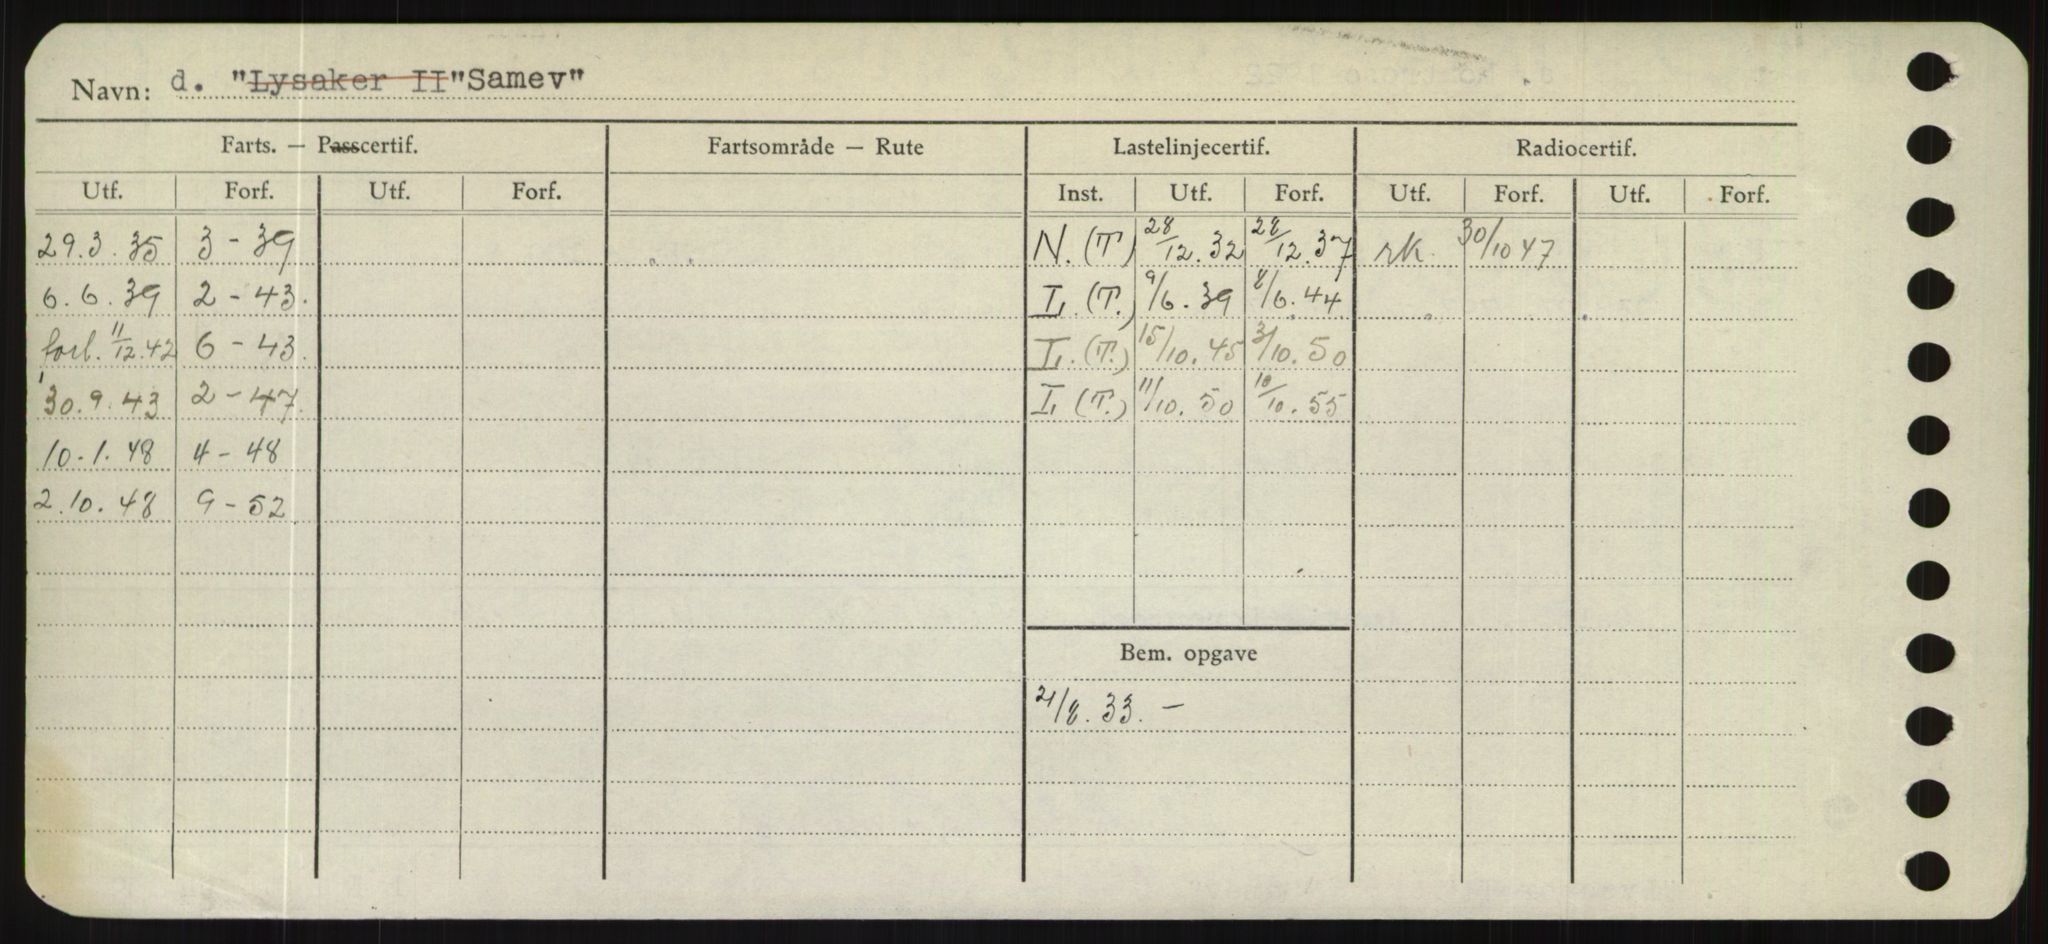 Navn: d. "Lysaker II "Samev"
Farts. — Passcertif. Fartsområde — Rute Lastelinjecertif. Radiocertif.
Utf. Forf. Utf. Forf. Inst. Utf. Forf. Utf. Forf. Utf. Forf.
29.3.35 3 - 39 N. (T) 28/12.32 28/12.37 rk. 30/10 47
6.6.39 2 - 43. I. (T.) 9/6.39 8/6.44
forl. 11/12.42 6 - 43. I. (T.) 15/10.45 3/10.50
30.9.43 2 - 47. I. (T.) 11/10.50 10/10.55
10.1.48 4 - 48
2.10.48 9 - 52
Bem. opgave
21/8.33. —